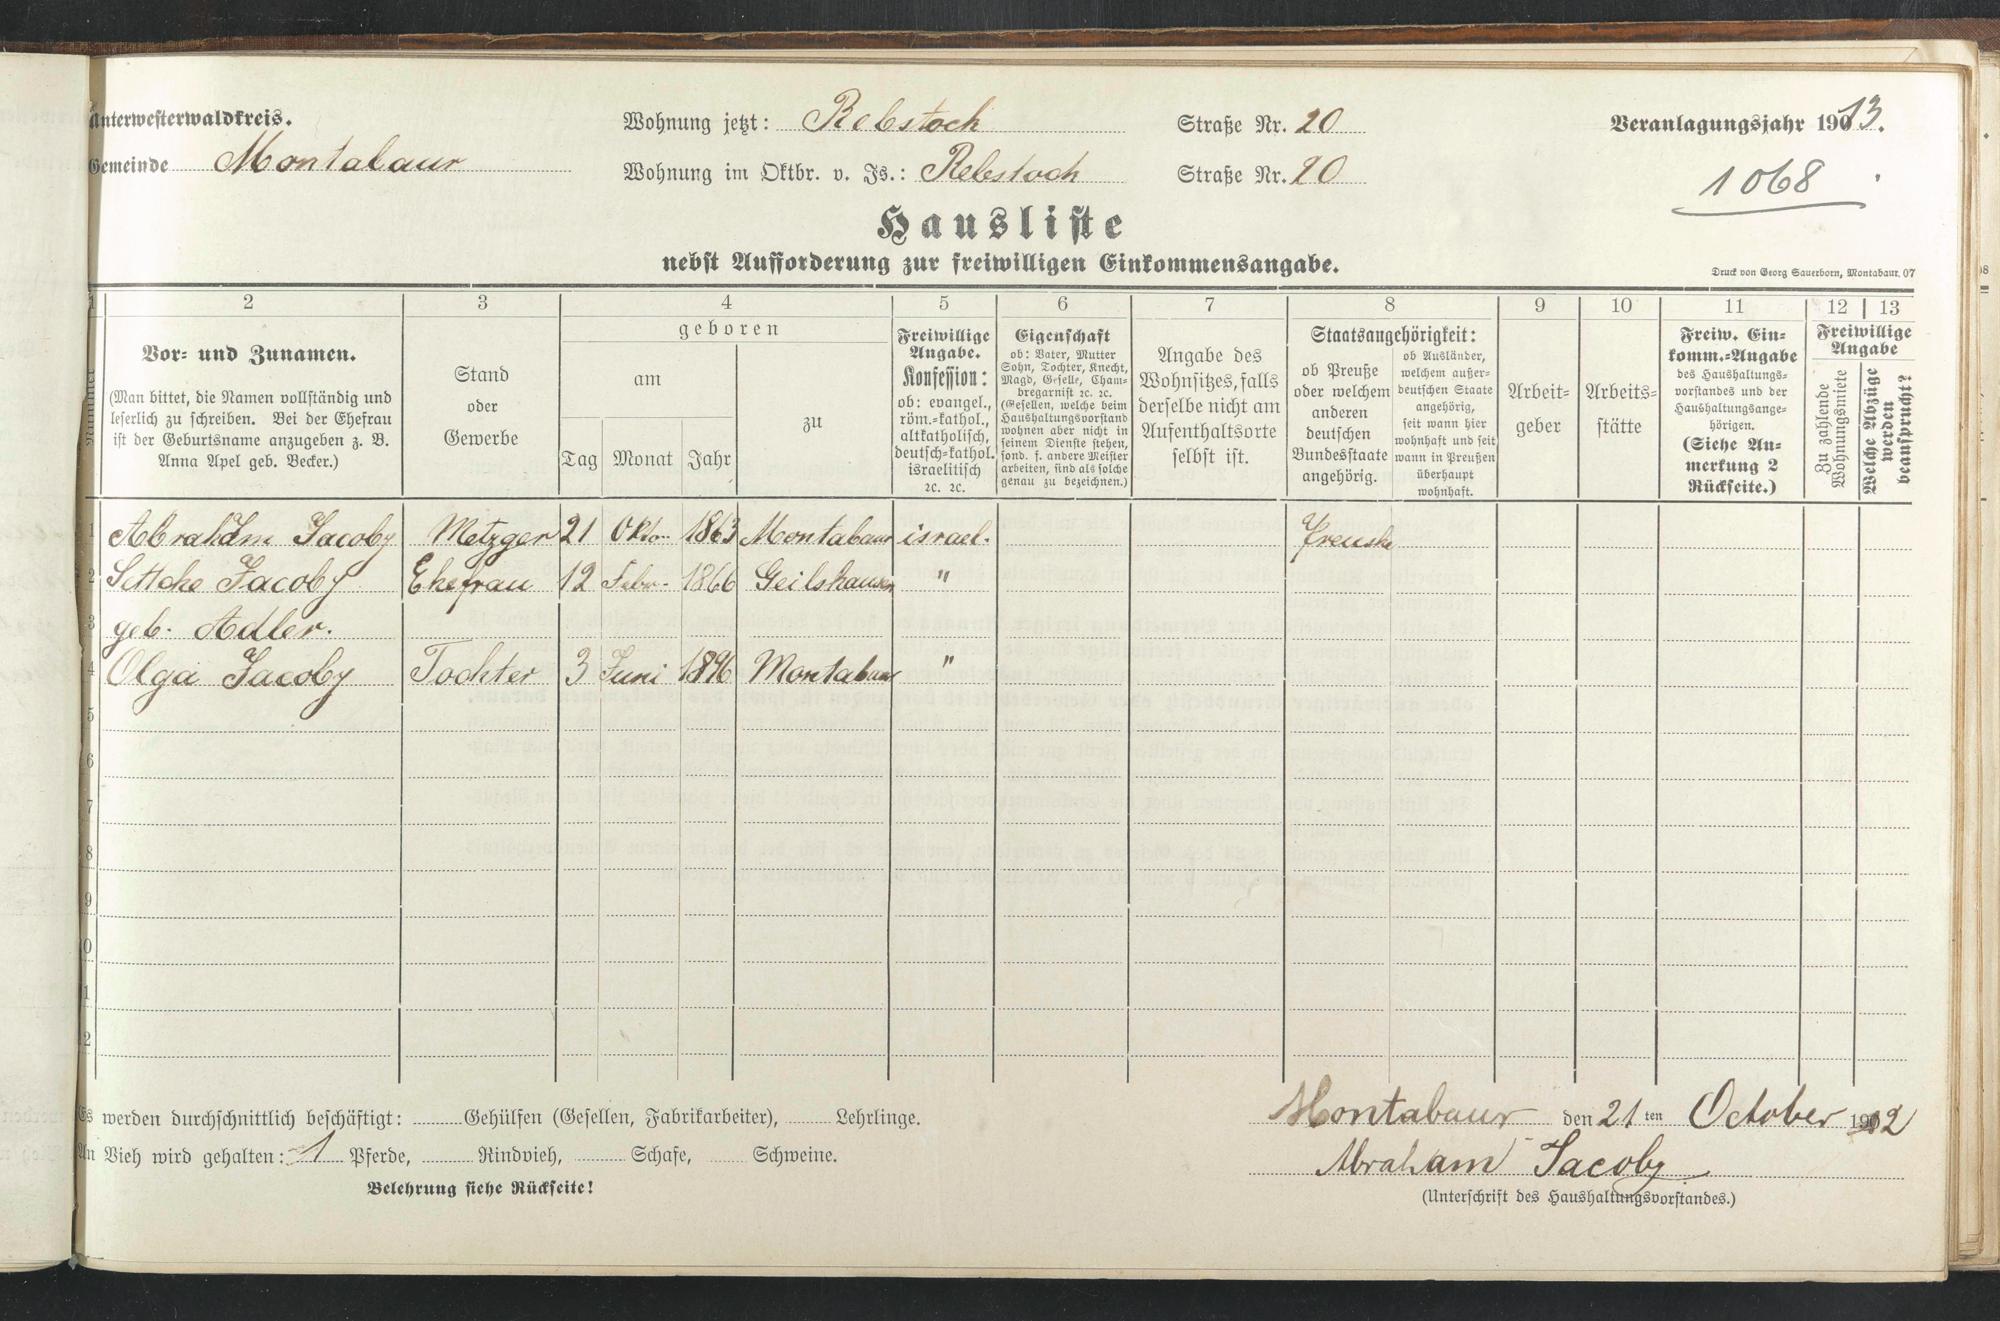 Unterwesterwaldkreis.
Gemeinde Montabaur
Wohnung jetzt: Rebstoch Straße Nr. 20
Wohnung im Oktbr. v. Js.: Rebstoch Straße Nr. 20
Veranlagungsjahr 1913.
1068
Hausliste
nebst Aufforderung zur freiwilligen Einkommensangabe.
Druck von Georg Sauerborn, Montabaur. 07
1 2 3 4 5 6 7 8 9 10 11 12 13
Nummer
Vor- und Zunamen.
(Man bittet, die Namen vollständig und
leserlich zu schreiben. Bei der Ehefrau
ist der Geburtsname anzugeben z. B.
Anna Apel geb. Becker.)
Stand
oder
Gewerbe
geboren
am
Tag Monat Jahr
zu
Freiwillige
Angabe.
Konfession:
ob: evangel.,
röm.-kathol.,
altkatholisch,
deutsch-kathol.
israelitisch
2c. 2c.
Eigenschaft
ob: Vater, Mutter
Sohn, Tochter, Knecht,
Magd, Geselle, Cham-
bregarnist 2c. 2c.
(Gesellen, welche beim
Haushaltungsvorstand
wohnen aber nicht in
seinem Dienste stehen,
sond. f. andere Meister
arbeiten, sind als solche
genau zu bezeichnen.)
Angabe des
Wohnsitzes, falls
derselbe nicht am
Aufenthaltsorte
selbst ist.
Staatsangehörigkeit:
ob Preuße
oder welchem
anderen
deutschen
Bundesstaate
angehörig.
ob Ausländer,
welchem außer-
deutschen Staate
angehörig,
seit wann hier
wohnhaft und seit
wann in Preußen
überhaupt
wohnhaft.
Arbeit-
geber
Arbeits-
stätte
Freiw. Ein-
komm.-Angabe
des Haushaltungs-
vorstandes und der
Haushaltungsange-
hörigen.
(Siehe An-
merkung 2
Rückseite.)
Freiwillige
Angabe
Zu zahlende
Wohnungsmiete
Welche Abzüge
werden
beansprucht?
1 Abraham Jacoby Metzger 21 Okto- 1863 Montabaur israel. Preuske
2 Settche Jacoby Ehefrau 12 Febr- 1866 Geilshausen "
3 geb. Adler.
4 Olga Jacoby Tochter 3 Juni 1896 Montabaur "
5
6
7
8
9
0
1
2
Es werden durchschnittlich beschäftigt: Gehülfen (Gesellen, Fabrikarbeiter), Lehrlinge.
An Vieh wird gehalten: 1 Pferde, Rindvieh, Schafe, Schweine.
Belehrung siehe Rückseite!
Montabaur den 21 ten October 1912
Abraham Jacoby
(Unterschrift des Haushaltungsvorstandes.)